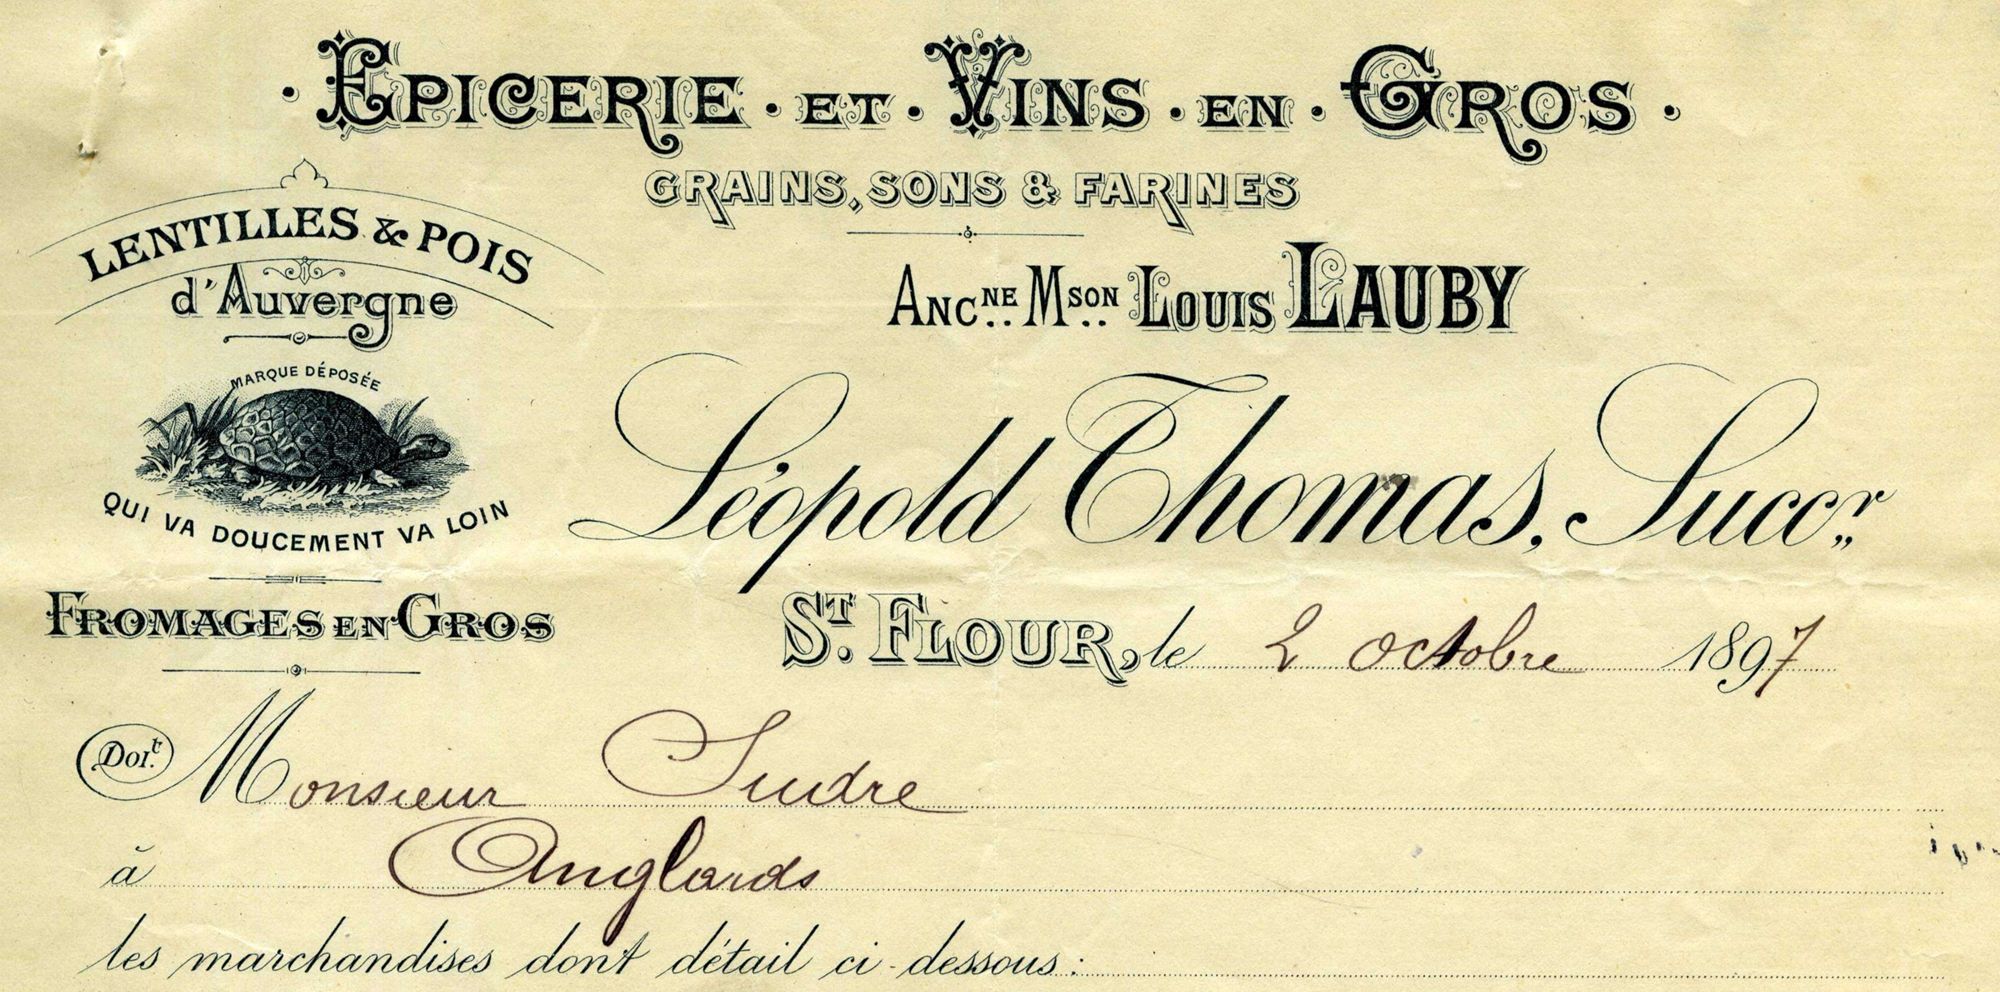 · EPICERIE · ET · VINS · EN · GROS ·
GRAINS, SONS & FARINES
LENTILLES & POIS
d'Auvergne
MARQUE DÉPOSÉE
QUI VA DOUCEMENT VA LOIN
FROMAGES EN GROS
ANCNE MSON LOUIS LAUBY
Léopold Thomas, Succr
ST. FLOUR, le 2 octobre 1897
Doit Monsieur Sudre
à Anglards
les marchandises dont détail ci-dessous: